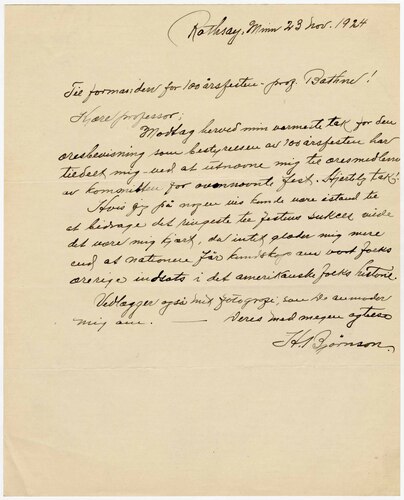 Rothsay, Minn 23 Nov. 1924
Til formanden for 100årsfesten - prof. Bothne!
Kjære professor;
Modtag herved min varmeste tak for den
æresbevisning som bestyrelsen av 100årsfesten har
tiedelt mig ved at utnævne mig til æresmedlem
av kommitten for ovennævnte fest. Hjertelig tak!
Hvis jeg på nogen vis kunde være istand til
at bidrage det ringeste til festens sukces vilde
det være mig kjært, da intet glæder mig mere
end at nationen får kundskap om vort folks
ærerige indsats i det amerikanske folks historie.
Vedlægger også mit fotografi, som De anmoder
mig om. — Deres med megen agtelse
H. Bjørnson.